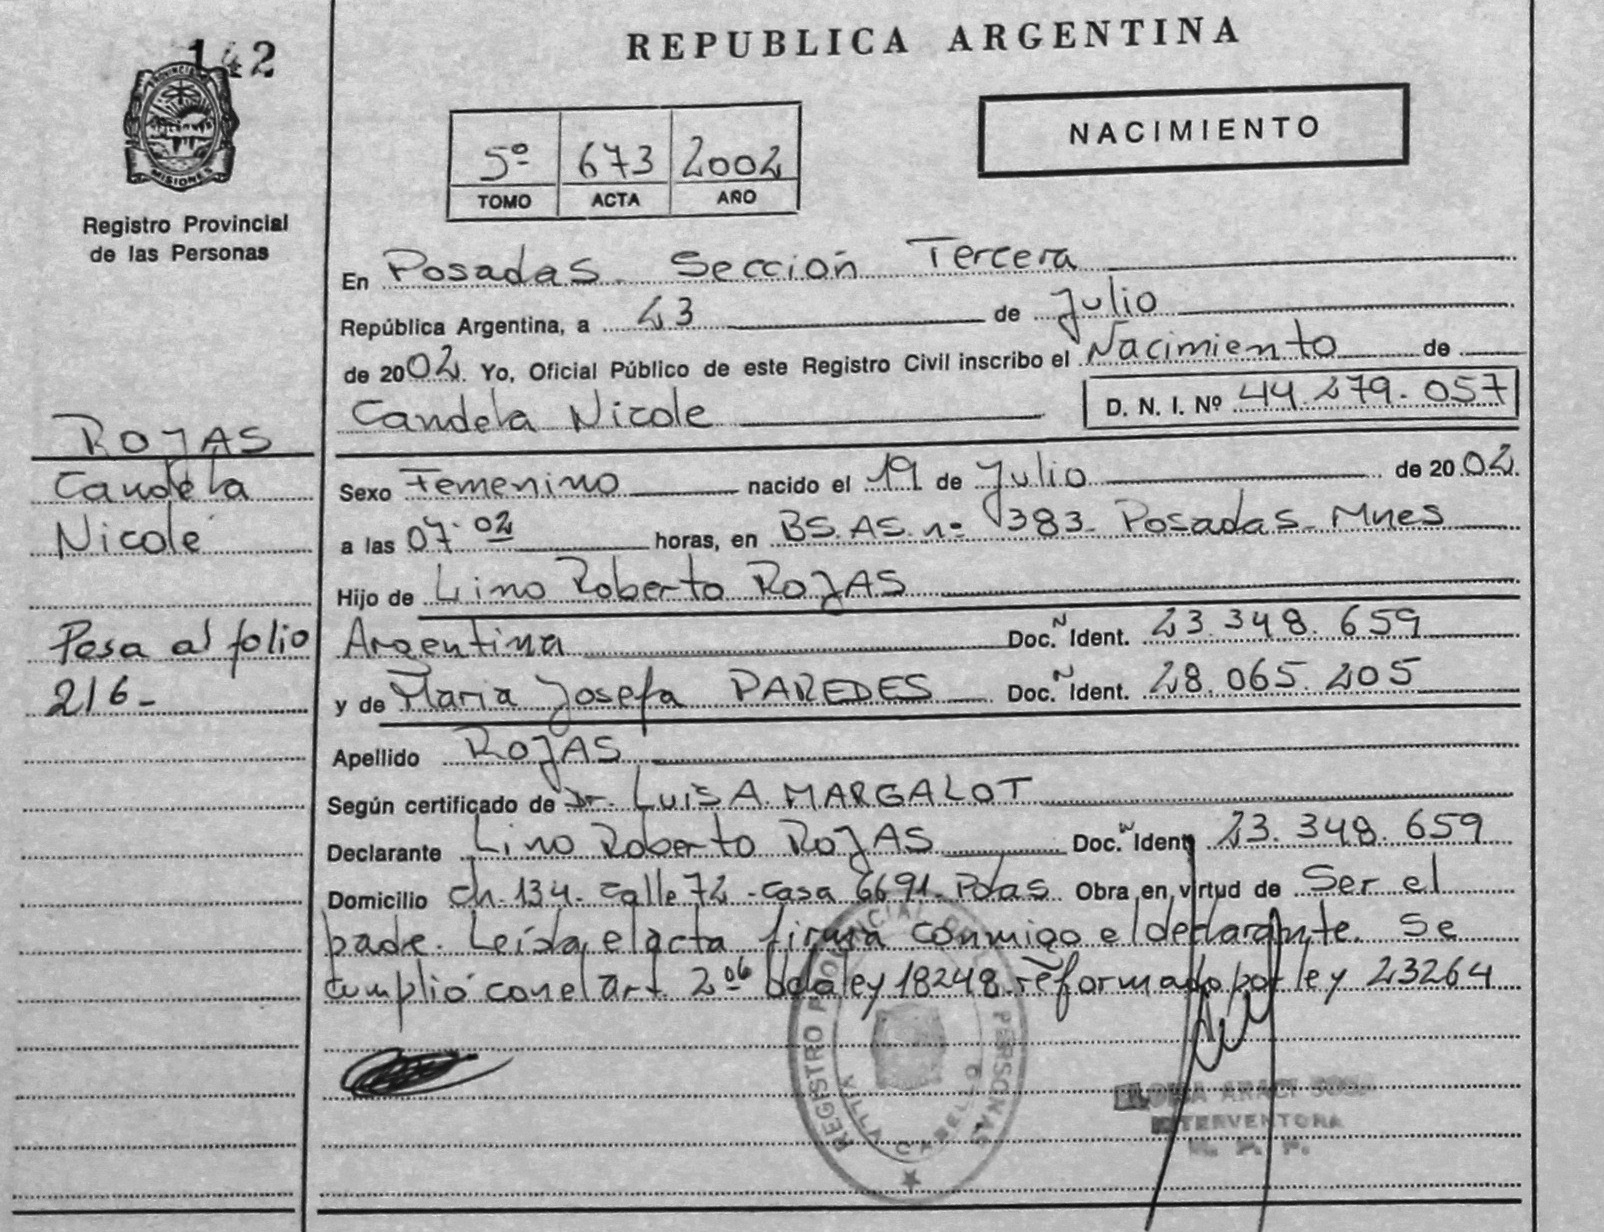 142
PROVINCIA DE
MISIONES
Registro Provincial
de las Personas
REPUBLICA ARGENTINA
NACIMIENTO
5º 673 2002
TOMO ACTA AÑO
En Posadas. Sección Tercera
República Argentina, a 23 de Julio
de 2002. Yo, Oficial Público de este Registro Civil inscribo el Nacimiento de
Candela Nicole D. N. I. Nº 44.279.057
ROJAS
Candela
Nicole
Pasa al folio
216-
Sexo Femenino nacido el 19 de Julio de 2002.
a las 07.02 horas, en BS.AS. nº 383. Posadas. Mnes
Hijo de Lino Roberto ROJAS
Argentina Doc. N Ident. 23.348.659
y de Maria Josefa PAREDES Doc. N Ident. 28.065.205
Apellido ROJAS
Según certificado de Dr. LUIS A. MARGALOT
Declarante Lino Roberto ROJAS Doc. N Ident. 23.348.659
Domicilio ch. 134. calle 72 - casa 6691. Pdas Obra en virtud de Ser el
padre. Leída el acta firma conmigo el declarante. Se
cumplió con el art. 2º de la ley 18248. reformado por ley 23264
REGISTRO PROVINCIAL DE PERSONAS
VILLA CABELLO
ARACI SOSA
INTERVENTORA
R. P. P.